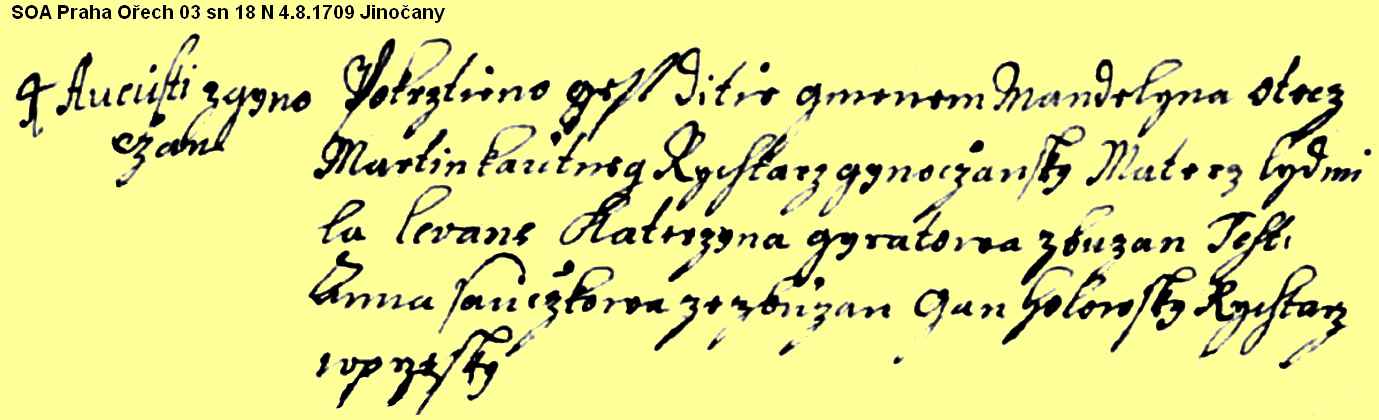 SOA Praha Ořech 03 sn 18 N 4.8.1709 Jinočany
4 Augusti z gyno Pokrztieno gest ditie gmenem Mandelyna otecz
czan Martin Rychtarz gynoczansky Materz lydmi
la levans Katerzyna gyratowa z buzan Test:
Anna sauczkowa ze zbuzan Gan holowsky Rychtarz